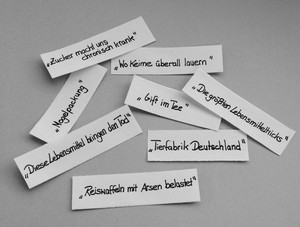 „Zucker macht uns
chronisch krank“
„Wo Keime überall lauern“
„Mogelpackung“
„Gift im Tee“
„Die größten Lebensmitteltricks“
„Diese Lebensmittel bringen den Tod“
„Tierfabrik Deutschland“
„Reiswaffeln mit Arsen belastet“